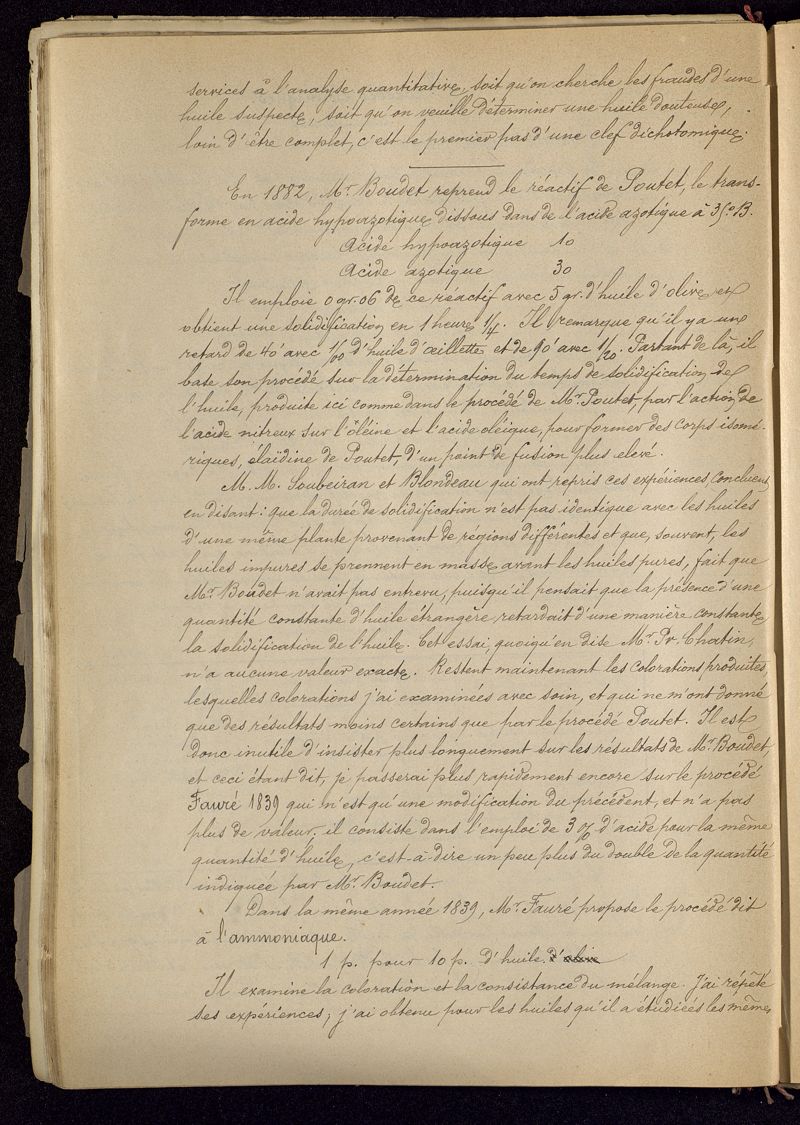 services à l'analyse quantitative, soit qu'on cherche les fraudes d'une
huile suspecte, soit qu'on veuille déterminer une huile douteuse,
loin d'être complet, c'est le premier pas d'une clef dichotomique.
En 1882, Mr. Boudet reprend le réactif de Poutet, le trans-
forme en acide hypoazotique dissous dans de l'acide azotique à 35° B.
Acide hypoazotique 10
Acide azotique 30
Il emploie 0 gr. 06 de ce réactif avec 5 gr. d'huile d'olive et
obtient une solidification en 1 heure 1/4. Il remarque qu'il y a un
retard de 40' avec 1/100 d'huile d'œillette et de 90' avec 1/20. Partant de là, il
base son procédé sur la détermination du temps de solidification de
l'huile, produite ici comme dans le procédé de Mr. Poutet, par l'action de
l'acide nitreux sur l'ôléine et l'acide oléique, pour former des corps isomé-
riques, élaïdine de Poutet, d'un point de fusion plus elevé.
M. M. Soubeiran et Blondeau qui ont repris ces expériences concluent
en disant : que la durée de solidification n'est pas identique avec les huiles
d'une même plante provenant de régions différentes et que, souvent, les
huiles impures se prennent en masse avant les huiles pures, fait que
Mr. Boudet n'avait pas entrevu, puisqu'il pensait que la présence d'une
quantité constante d'huile étrangère retardait d'une manière constante
la solidification de l'huile. Cet essai, quoiqu'en dise Mr. Pr Chatin,
n'a aucune valeur exacte. Restent maintenant les colorations produites,
lesquelles colorations j'ai examinées avec soin, et qui ne m'ont donné
que des résultats moins certains que par le procédé Poutet. Il est
donc inutile d'insister plus longuement sur les résultats de Mr. Boudet,
et ceci étant dit, je passerai plus rapidement encore sur le procédé
Fauré 1839 qui n'est qu'une modification du précédent, et n'a pas
plus de valeur, il consiste dans l'emploi de 3 % d'acide pour la même
quantité d'huile, c'est-à-dire un peu plus du double de la quantité
indiquée par Mr. Boudet.
Dans la même année 1839, Mr. Fauré propose le procédé dit
à l'ammoniaque.
1 p. pour 10 p. d'huile d'olive
Il examine la coloration et la consistance du mélange. J'ai répété
ses expériences, j'ai obtenu pour les huiles qu'il a étudiées les mêmes